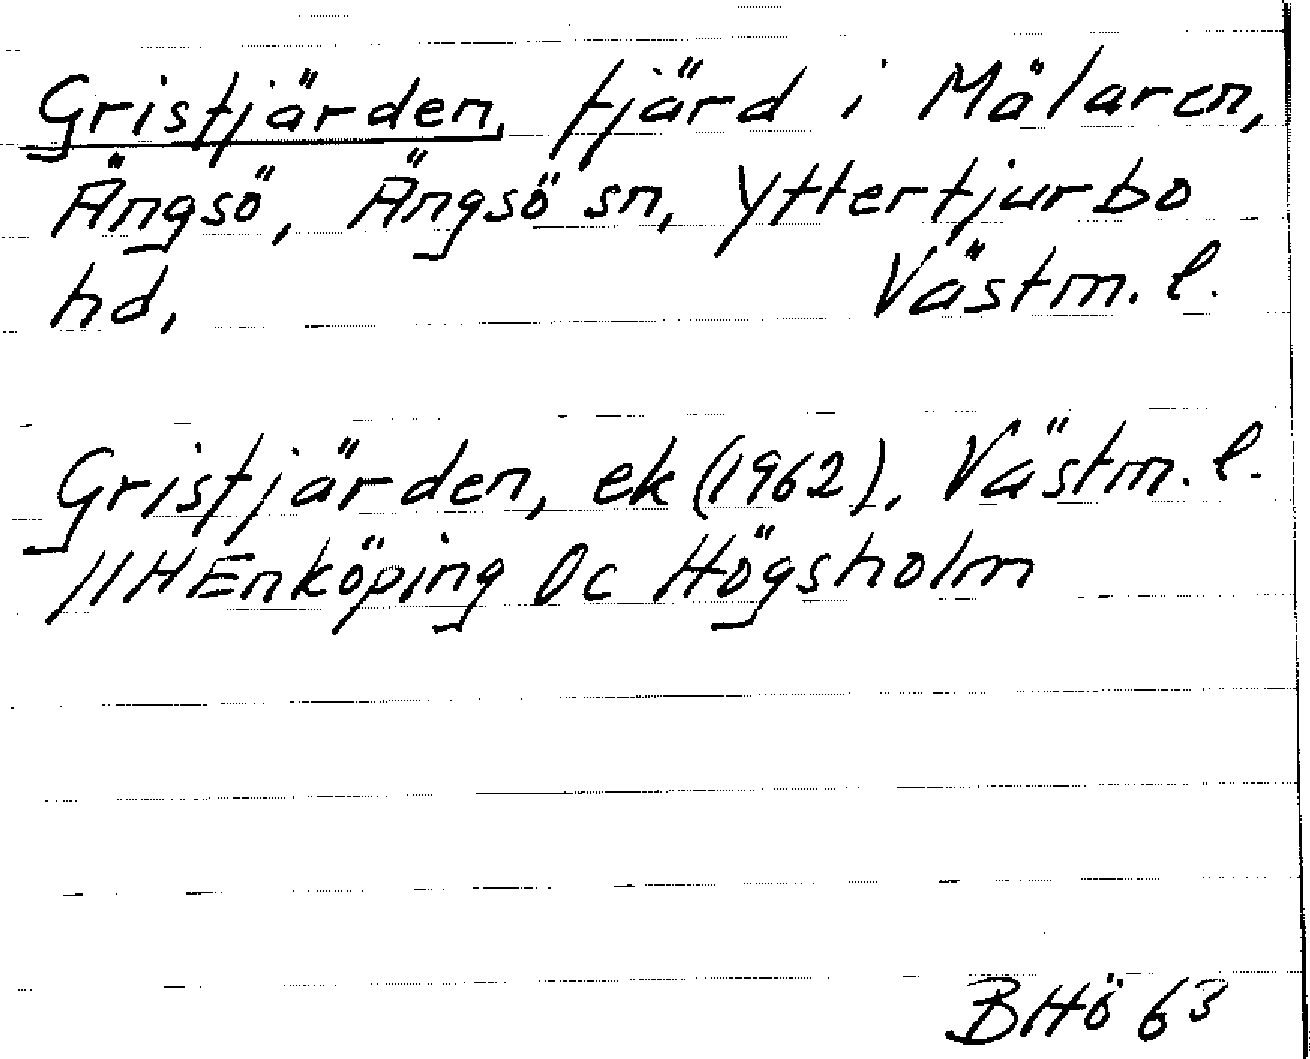 Grisfjärden, fjärd i Mälaren,
Ängsö, Ängsö sn, Yttertjurbo
hd, Västm. l.
Grisfjärden, ek (1962), Västm. l.
11H Enköping 0c Högsholm
BHö 63